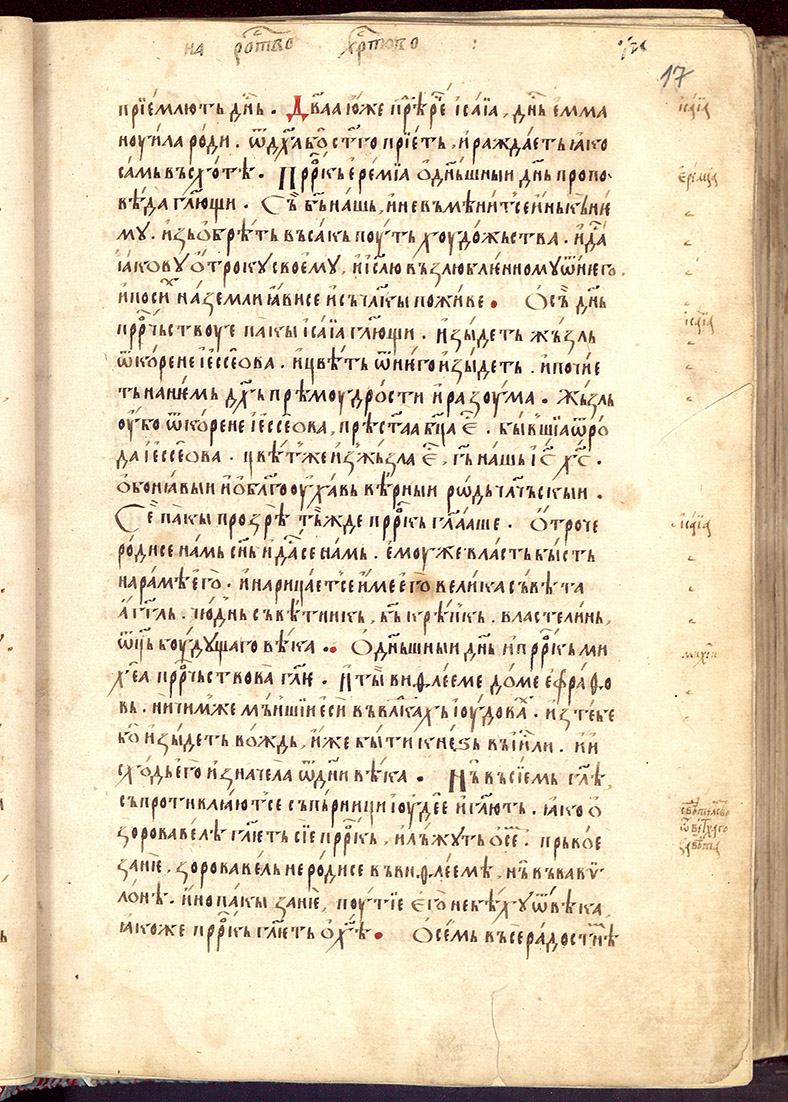 на рⷪ҇тво хрⷭ҇тово
17
прїемлють дн҃ь . Два҃а юже прⷣѣре҇ исаїа , дн҃ь емма
ноуила роди . ѿ дх҃а бо ст҃го прїеть , и раждаеть ꙗко
самь въсхотѣ . Прⷪ҇ркь еремїа ѡ дн҃ьшныи дн҃ь пропо
вѣда гл҃ющи . Съ бг҃ь нашь , и не въмѣнит се инь къ не
му . изьобрѣть въсакь поуть хоудожьства . и дада
ꙗкову ѡтроку своему , и іс҃лю възлюблѥнному ѿ него .
и посиⷯ на земли ꙗви се и съ чл҃кы поживе . Ѡ съ дн҃ь
прⷪ҇рчьствоуе пакы исаїа гл҃ющи . изыдеть жьзль
ѿ корене іессеова . и цвѣть ѿ него изыдеть . и почіе
ть на нѥмь дх҃ь прѣмоудрости и разоума . Жьзль
оубо ѿ корене іессеова , прѣст҃аа бц҃а е҇ . бывшїа ѿ ро
да іессеова . цвѣт же из жьзла е҇ , гь҃ нашь іс҃ хс҃ .
ѡбонꙗвыи и ѡбл҃гооухавь вѣрныи родь чл҃чьскыи .
Се пакы прозрѣ тьжде прⷪ҇ркь гл҃аше . Ѡтроче
роди се намь сн҃ь и даⷭ се намь . емоуже власть бысть
на рамѣ его . и нарицает се име его велика съвѣта
аггл҃ь . чюднь съвѣтникь , бг҃ь крѣпкь . властелинь ,
ѿц҃ь боудущаго вѣка .. Ѡ дн҃ьшныи дн҃ь и прⷪ҇ркь ми
хеа прⷪ҇рчьствова гл҃ѥ . И ты виѳлееме доме ефраѳо
вь . ничимже мьншїи еси въ влⷣкахь іоудоваⷯ . из тебе
бо изыдеть вождь , иже быти кнеѕь въ іи҃ли . и и
сходь его из начела ѿ дни вѣка . Нь въ сїемь гл҃ѣ ,
съпротивлꙗют се съпьрници іоудее и гл҃ють . ꙗко ѡ
зоровавелѣ гл҃еть сїе прⷪ҇ркь , и льжуть ѡ се҇ . прьвое
заніе , зоровавель не роди се въ виѳлеемѣ , нь въ вавѷ
лонѣ . ино пакы заніе , поутїе его не бѣху ѿ вѣка
ꙗкоже прⷪ҇ркь гл҃еть ѡ хѣ҃ . Ѡ семь въсерадостнѣ
исаїа
еремїа
исаїа
исаїа
михеи